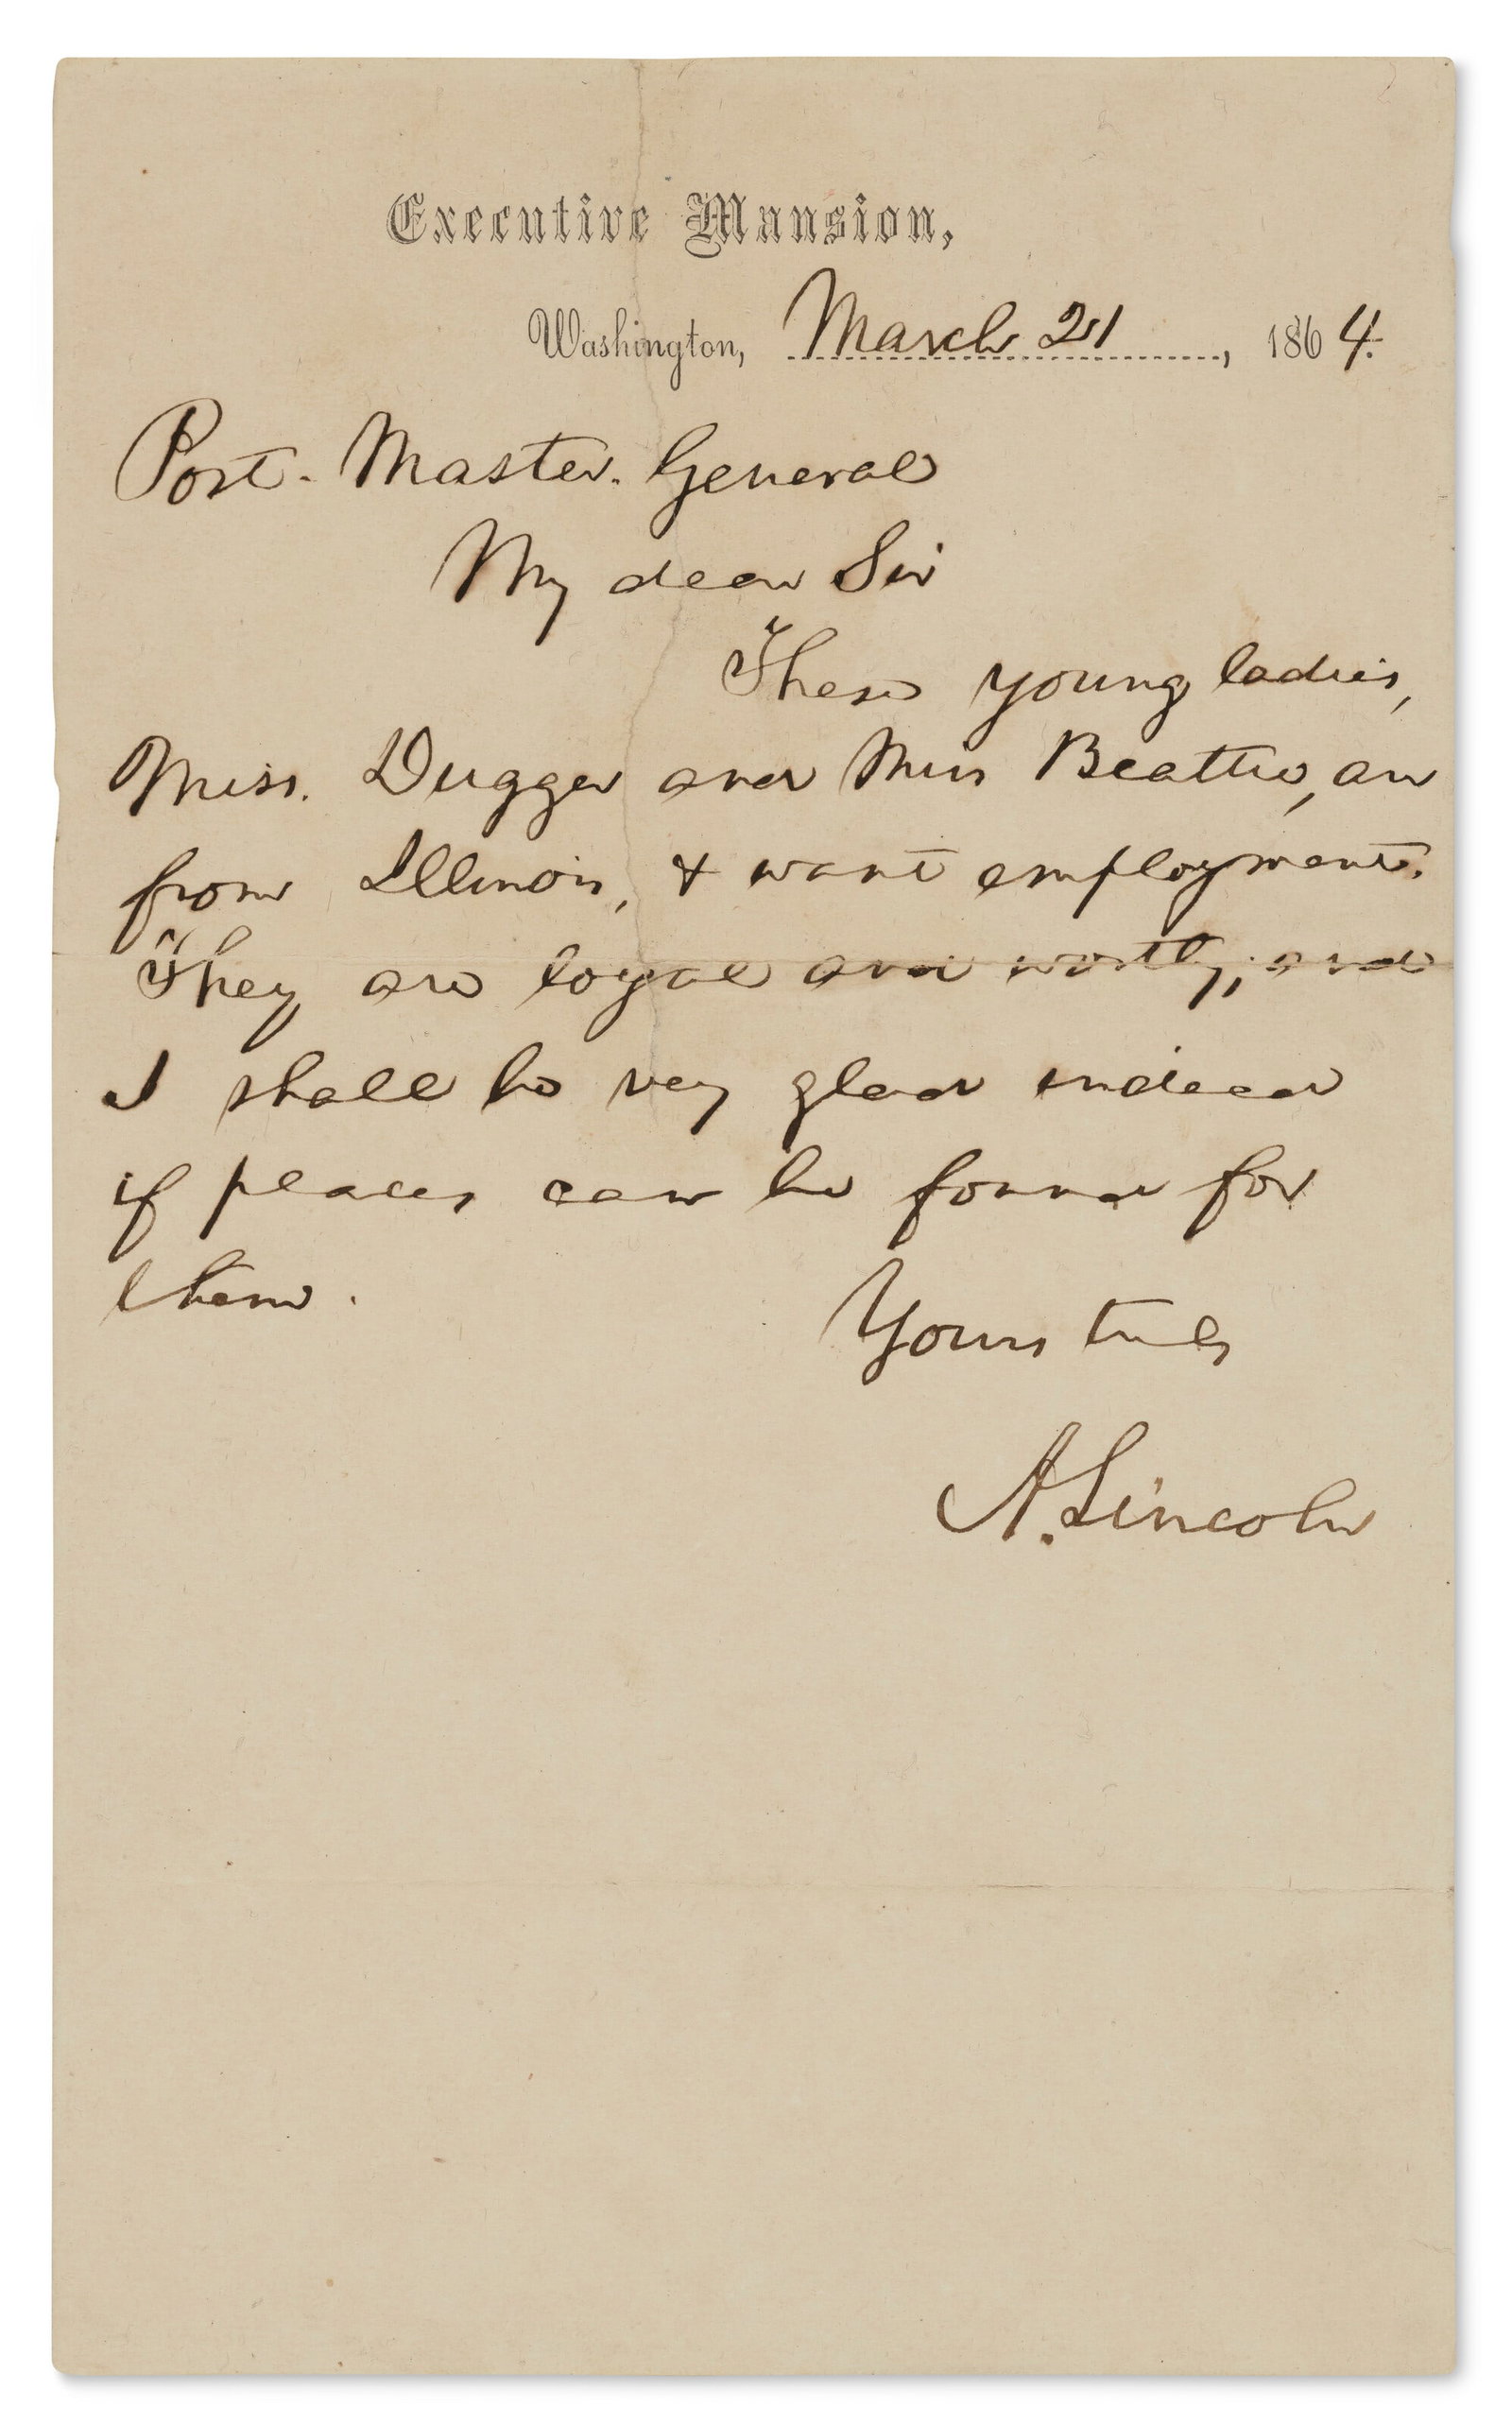 Executive Mansion,
Washington, March 21, 1864.
Post-Master-General
My dear Sir
These young ladies,
Miss. Dugger and Miss Beattie, are
from Illinois, & want employment.
They are loyal and worthy; and
I shall be very glad indeed
if places can be found for
them.
Yours truly
A. Lincoln